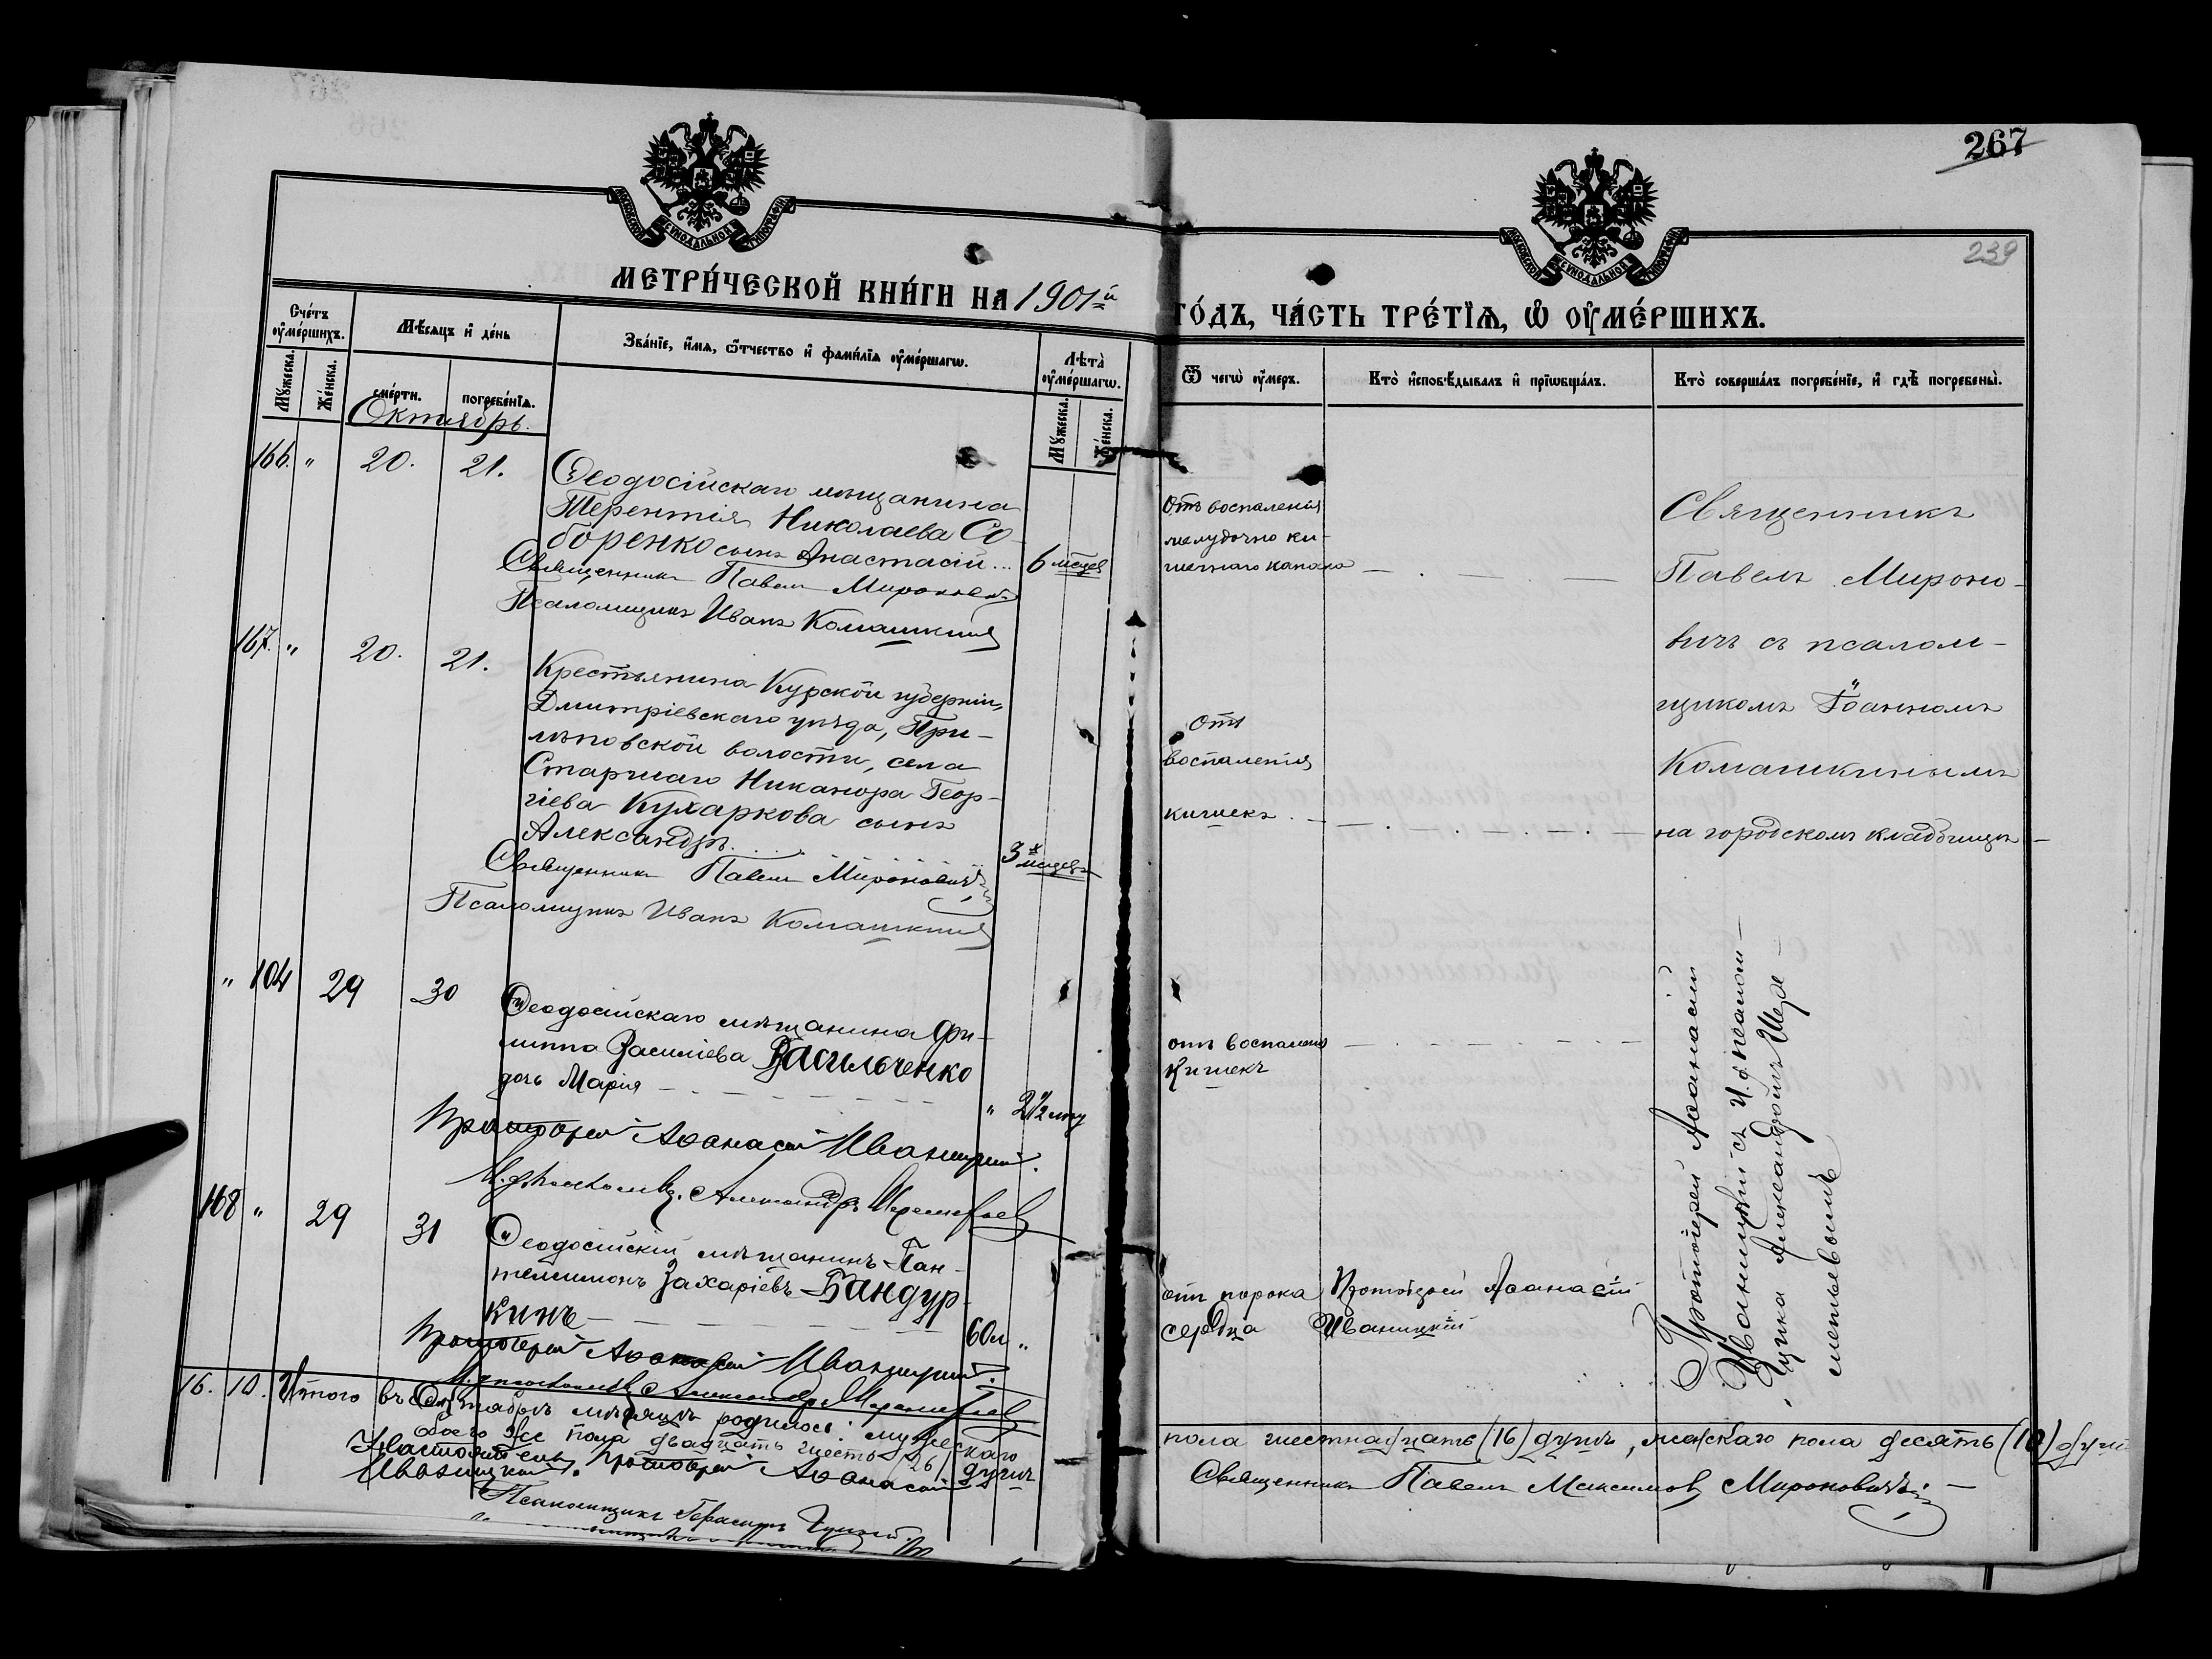 267
239
МОСКОВСКОЙ СѴНОДАЛЬНОЙ ТИПОГРАФІИ
МОСКОВСКОЙ СѴНОДАЛЬНОЙ ТИПОГРАФІИ
МЕТРИ́ЧЕСКОЙ КНИ́ГИ НА 1901й
ГО́ДЪ, ЧА́СТЬ ТРЕ́ТЇѦ, Ѡ ОУМЕ́РШИХЪ.
Сче́тъ оуме́ршихъ.
Мѣсяцъ и де́нь
Зва́нїе, и́мя, ѿтчество и фами́лїя оуме́ршагѡ.
Лѣта̀ оуме́ршагѡ.
Мꙋжеска.
Же́нска.
сме́рти.
погребе́нїя.
Мꙋжеска.
Же́нска.
Ѿ чегѡ̀ оу́меръ.
Кто̀ исповѣдывалъ и прїѡбща́лъ.
Кто̀ соверша́лъ погребе́нїе, и гдѣ̀ погребены̀.
Октябрь.
166. " 20. 21.
Ѳеодосійскаго мѣщанина
Терентія Николаева Со-
боренко сынъ Анастасій... 6 мсцев
Священникъ Павелъ Мироновичъ
Псаломщикъ Иванъ Комашкинъ
Отъ воспаленія
желудочно ки-
шечнаго канала
Священникъ
Павелъ Мироно-
вичъ съ псалом-
щикомъ Іоанномъ
Комашкинымъ
на городскомъ кладбищѣ
167. " 20. 21.
Крестьянина Курской губерніи,
Дмитріевскаго уѣзда, При-
лѣповской волости, села
Старшаго Никанора Геор-
гіева Кухаркова сынъ
Александръ. . . . . 3х мсцевъ
Священникъ Павелъ Мироновичъ
Псаломщикъ Иванъ Комашкинъ
Отъ
воспаленія
кишекъ.
" 104 29 30
Ѳеодосійскаго мѣщанина Фи-
липпа Василіева Васильченко
дочь Марія " 2 1/2 лѣт
Протоіерей Аѳанасій Иваницкій.
И. д. псаломщ. Александръ Шереметьев
отъ воспаленія
кишекъ
Протоіерей Аѳанасій
Иваницкій съ И. д. псалом-
щика Александромъ Шере-
метьевымъ
168 " 29 31
Ѳеодосійскій мѣщанинъ Пан-
телеимонъ Захаріевъ Бандур-
кинъ 60 л "
Протоіерей Аѳанасій Иваницкій.
И. д. псаломщ. Александръ Шереметьев
отъ порока
сердца
Протоіерей Аѳанасій
Иваницкій
16. 10. Итого въ Октябрѣ мѣсяцѣ родилось: мужескаго
пола шестнадцать (16) душъ, женскаго пола десять (10) душъ
обоего же пола двадцать шесть (26) душъ
Настоятель Протоіерей Аѳанасій
Иваницкій.
Священникъ Павелъ Максимов Мироновичъ
Псаломщикъ Герасимъ